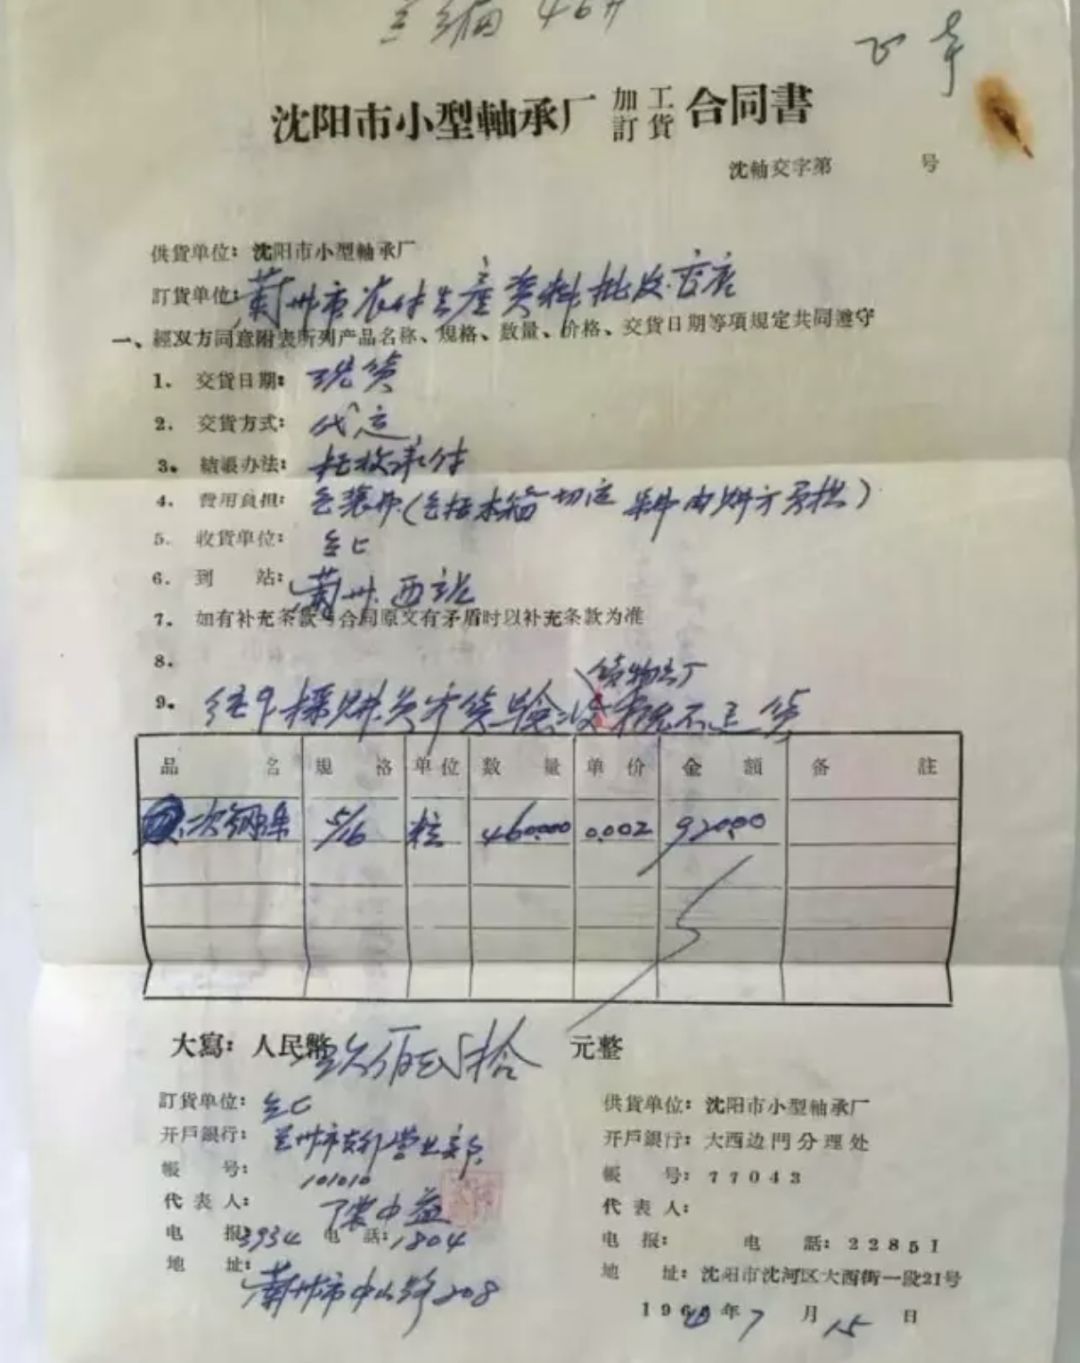 沈阳市小型軸承厂 加工訂貨 合同書
沈軸交字第 号
供貨单位: 沈阳市小型軸承厂
訂貨单位: 蘭州市农村生産资料批发商店
一、經双方同意附表所列产品名称、規格、数量、价格、交貨日期等項規定共同遵守
1. 交貨日期: 现货
2. 交貨方式: 代运
3. 結賬办法: 托收承付
4. 費用負担: 包装费(包括木箱一切运杂
5. 收貨单位: 仝上
6. 到 站: 蘭州西站
7. 如有补充条款与合同原文有矛盾时以补充条款为准
8.
货物出厂
9.
品 名 規 格 单位 数 量 单 价 金 額 备 註
次鋼珠 5/16 粒 460000 0.002 920.00
大寫: 人民幣 玖佰贰拾 元整
訂貨单位: 仝上
开戶銀行: 兰州市支行营业部
帳 号: 101010
代 表 人:
电 报: 3934 电 話: 1804
地 址: 蘭州市中山路208
供貨单位: 沈阳市小型軸承厂
开戶銀行: 大西边門分理处
帳 号: 77043
代 表 人:
电 报: 电 話: 22851
地 址: 沈阳市沈河区大西街一段21号
年 7 月 15 日